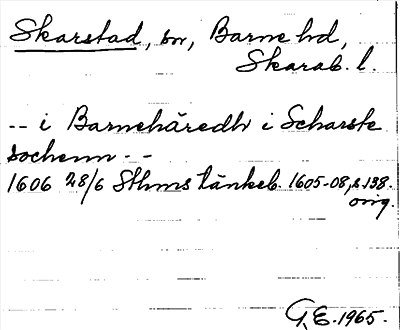 Skarstad, sn, Barne hd,
Skarab. l.
-- i Barnehäredh i Scharste
sochenn --
1606 28/6 Sthms tänkeb. 1605-08, s 138.
orig.
G.E. 1965.